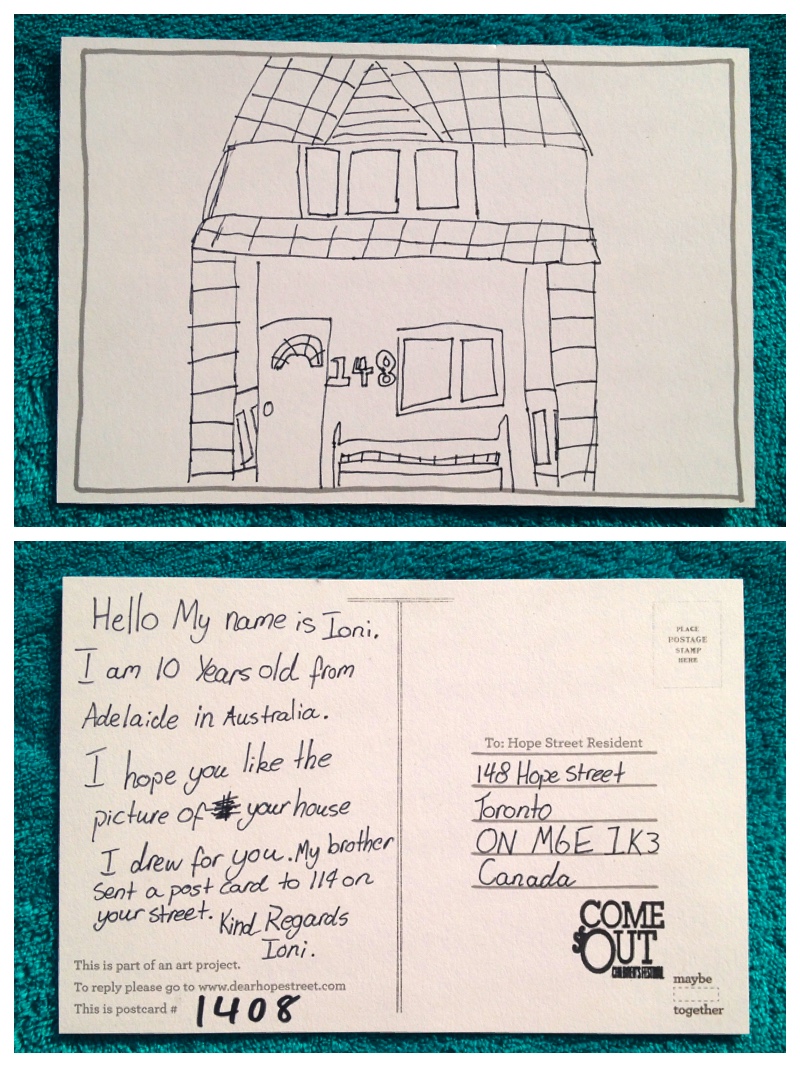 148
Hello My name is Ioni.
I am 10 Years old from
Adelaide in Australia.
I hope you like the
picture of your house
I drew for you. My brother
sent a post card to 114 on
your street. Kind Regards
Ioni.
This is part of an art project.
To reply please go to www.dearhopestreet.com
This is postcard # 1408
PLACE
POSTAGE
STAMP
HERE
To: Hope Street Resident
148 Hope Street
Toronto
ON M6E 1K3
Canada
COME
OUT
CHILDREN'S FESTIVAL
maybe
together